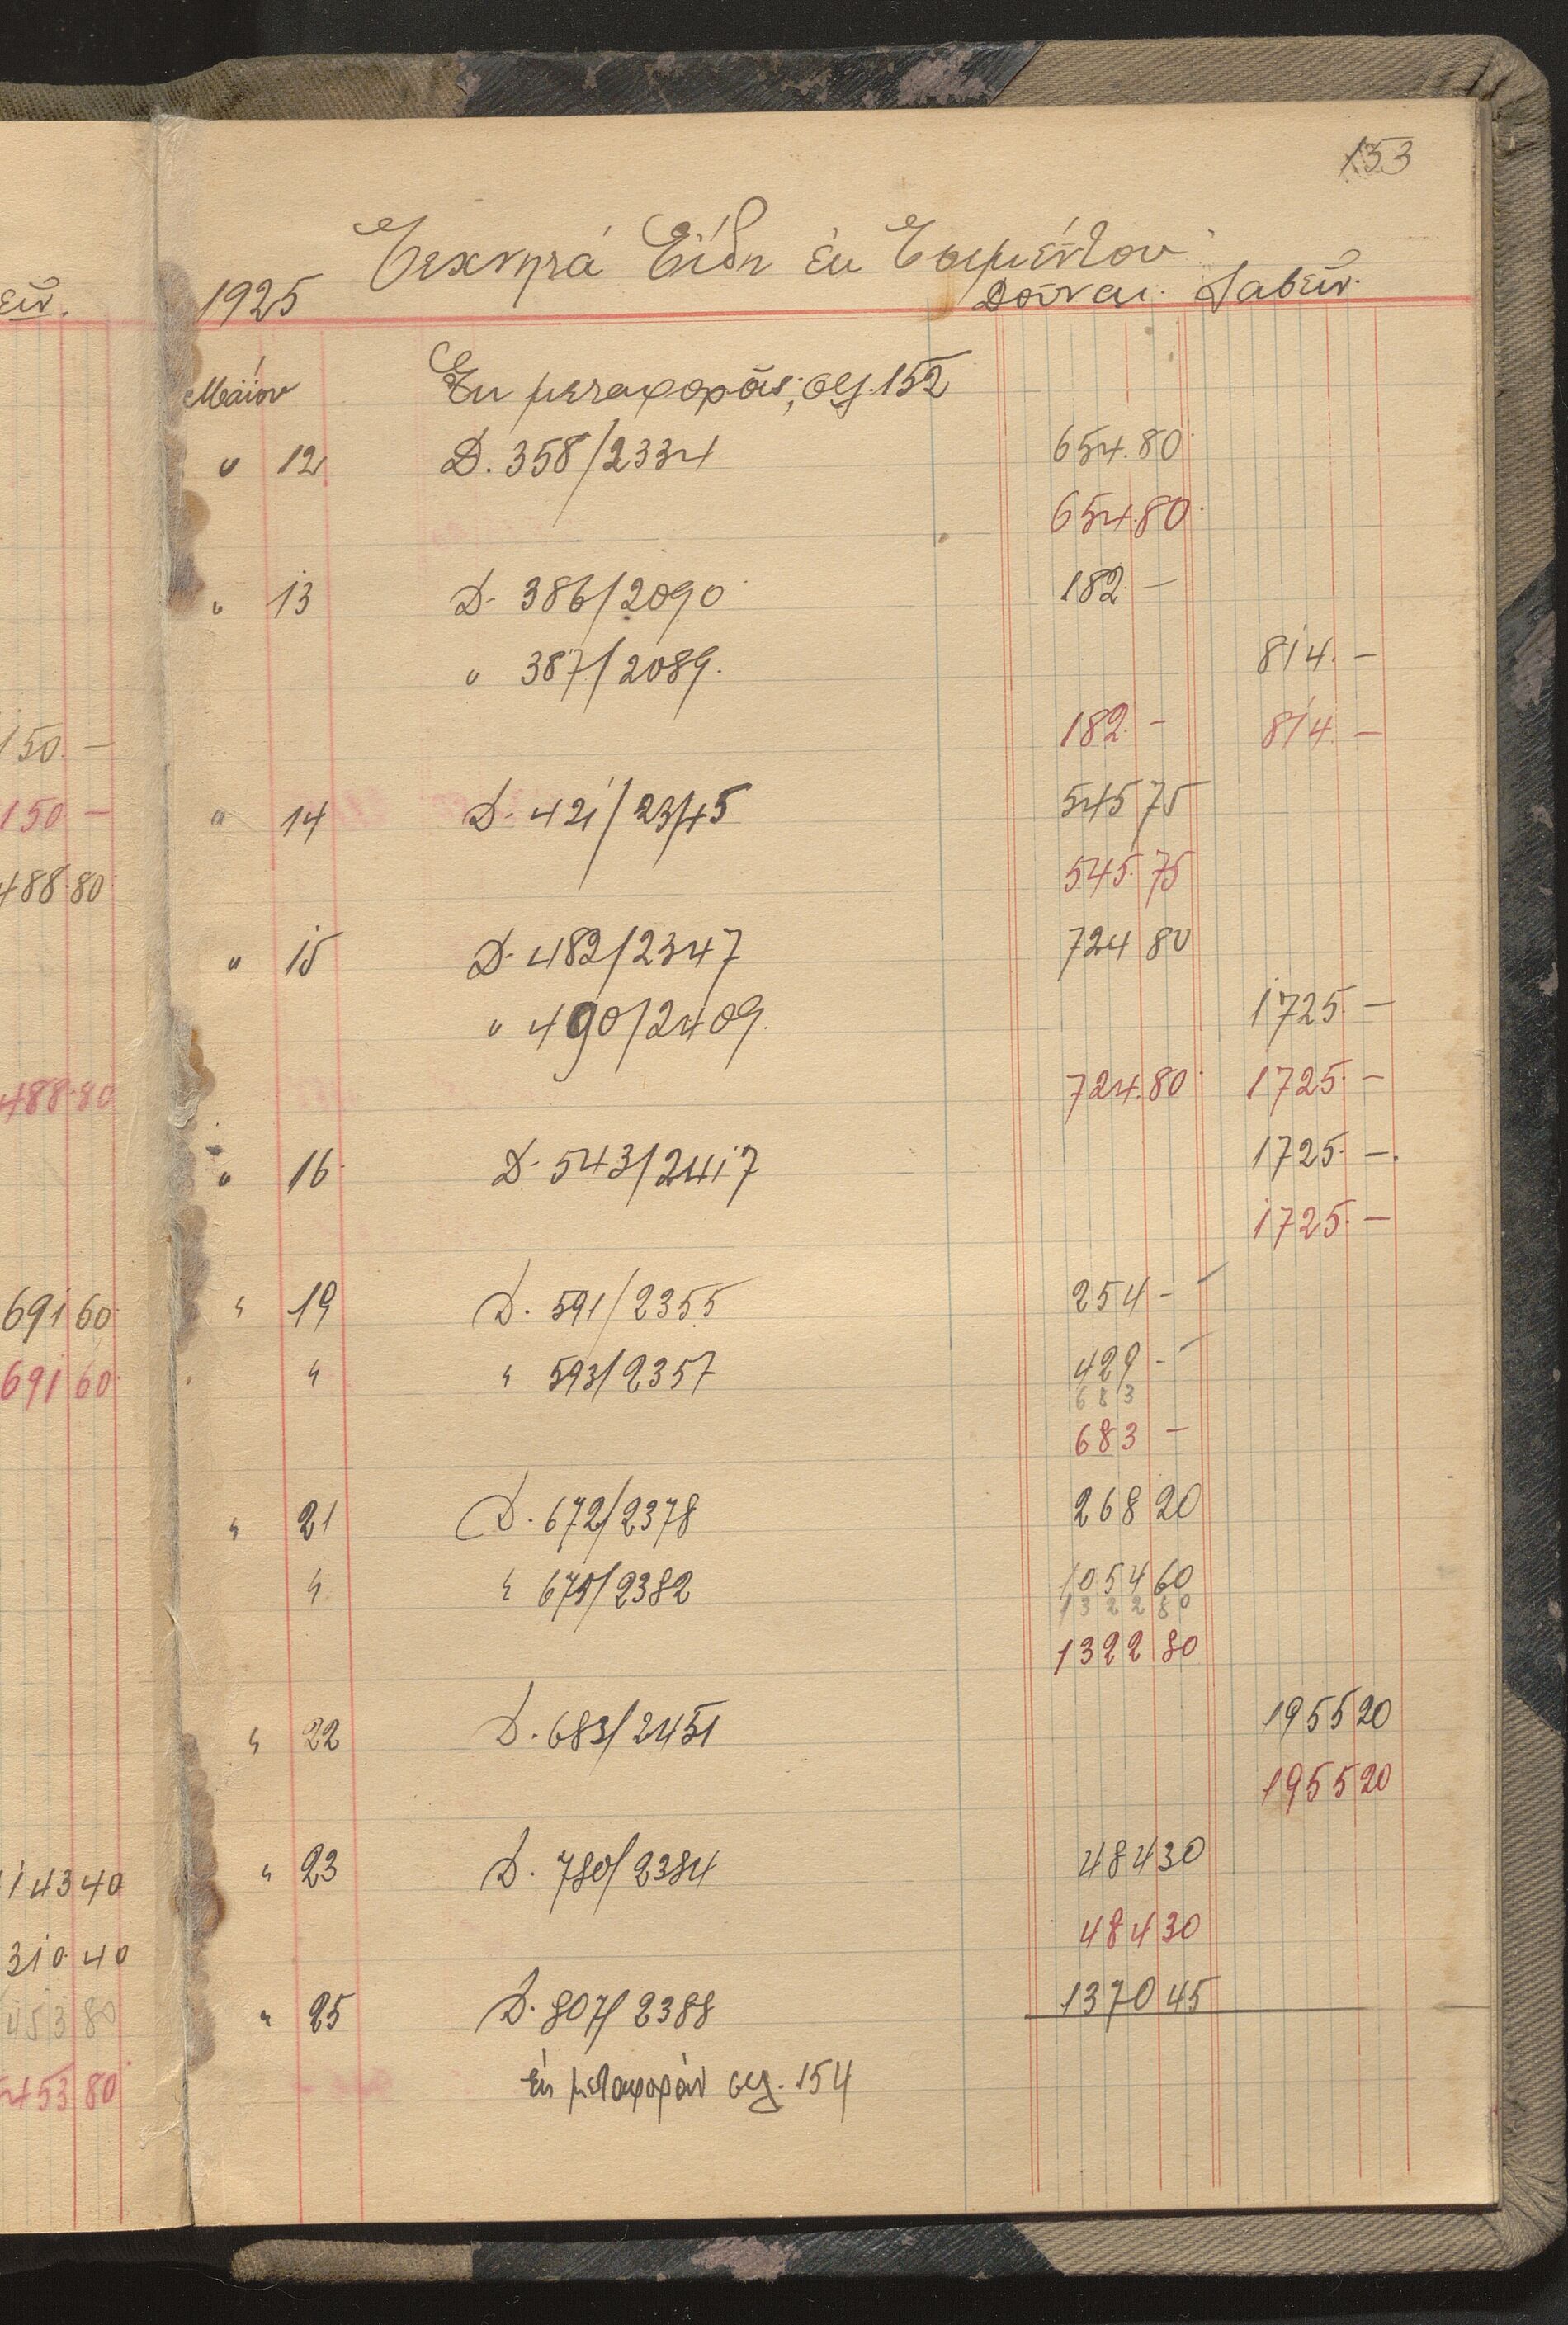 153
Τεχνητά Είδη εκ Τσιμέντου
1925 Δούναι. Λαβείν.
Μαΐου Εκ μεταφοράς, σελ. 152
" 12 Δ. 358/2334 654.80
654.80
" 13 Δ. 386/2090 182.—
" 387/2089. 814.—
182.— 814.—
" 14 Δ. 421/2345 545 75
545.75
" 15 Δ. 482/2347 724 80
" 490/2409. 1725.—
724.80 1725.—
" 16 Δ. 543/2417 1725.—.
1725.—
" 19 Δ. 591/2355 254 —
" " 593/2357 429 —
683
683 —
" 21 Δ. 672/2378 268 20
" " 675/2382 1054 60
1322 80
1322 80
" 22 Δ. 683/2451 1955 20
1955 20
" 23 Δ. 780/2384 484 30
484 30
" 25 Δ. 807/2388 1370 45
εις μεταφοράν σελ. 154
είν.
150.—
150 —
488.80
488.80
691 60
691 60
143 40
310.40
453 80
453 80